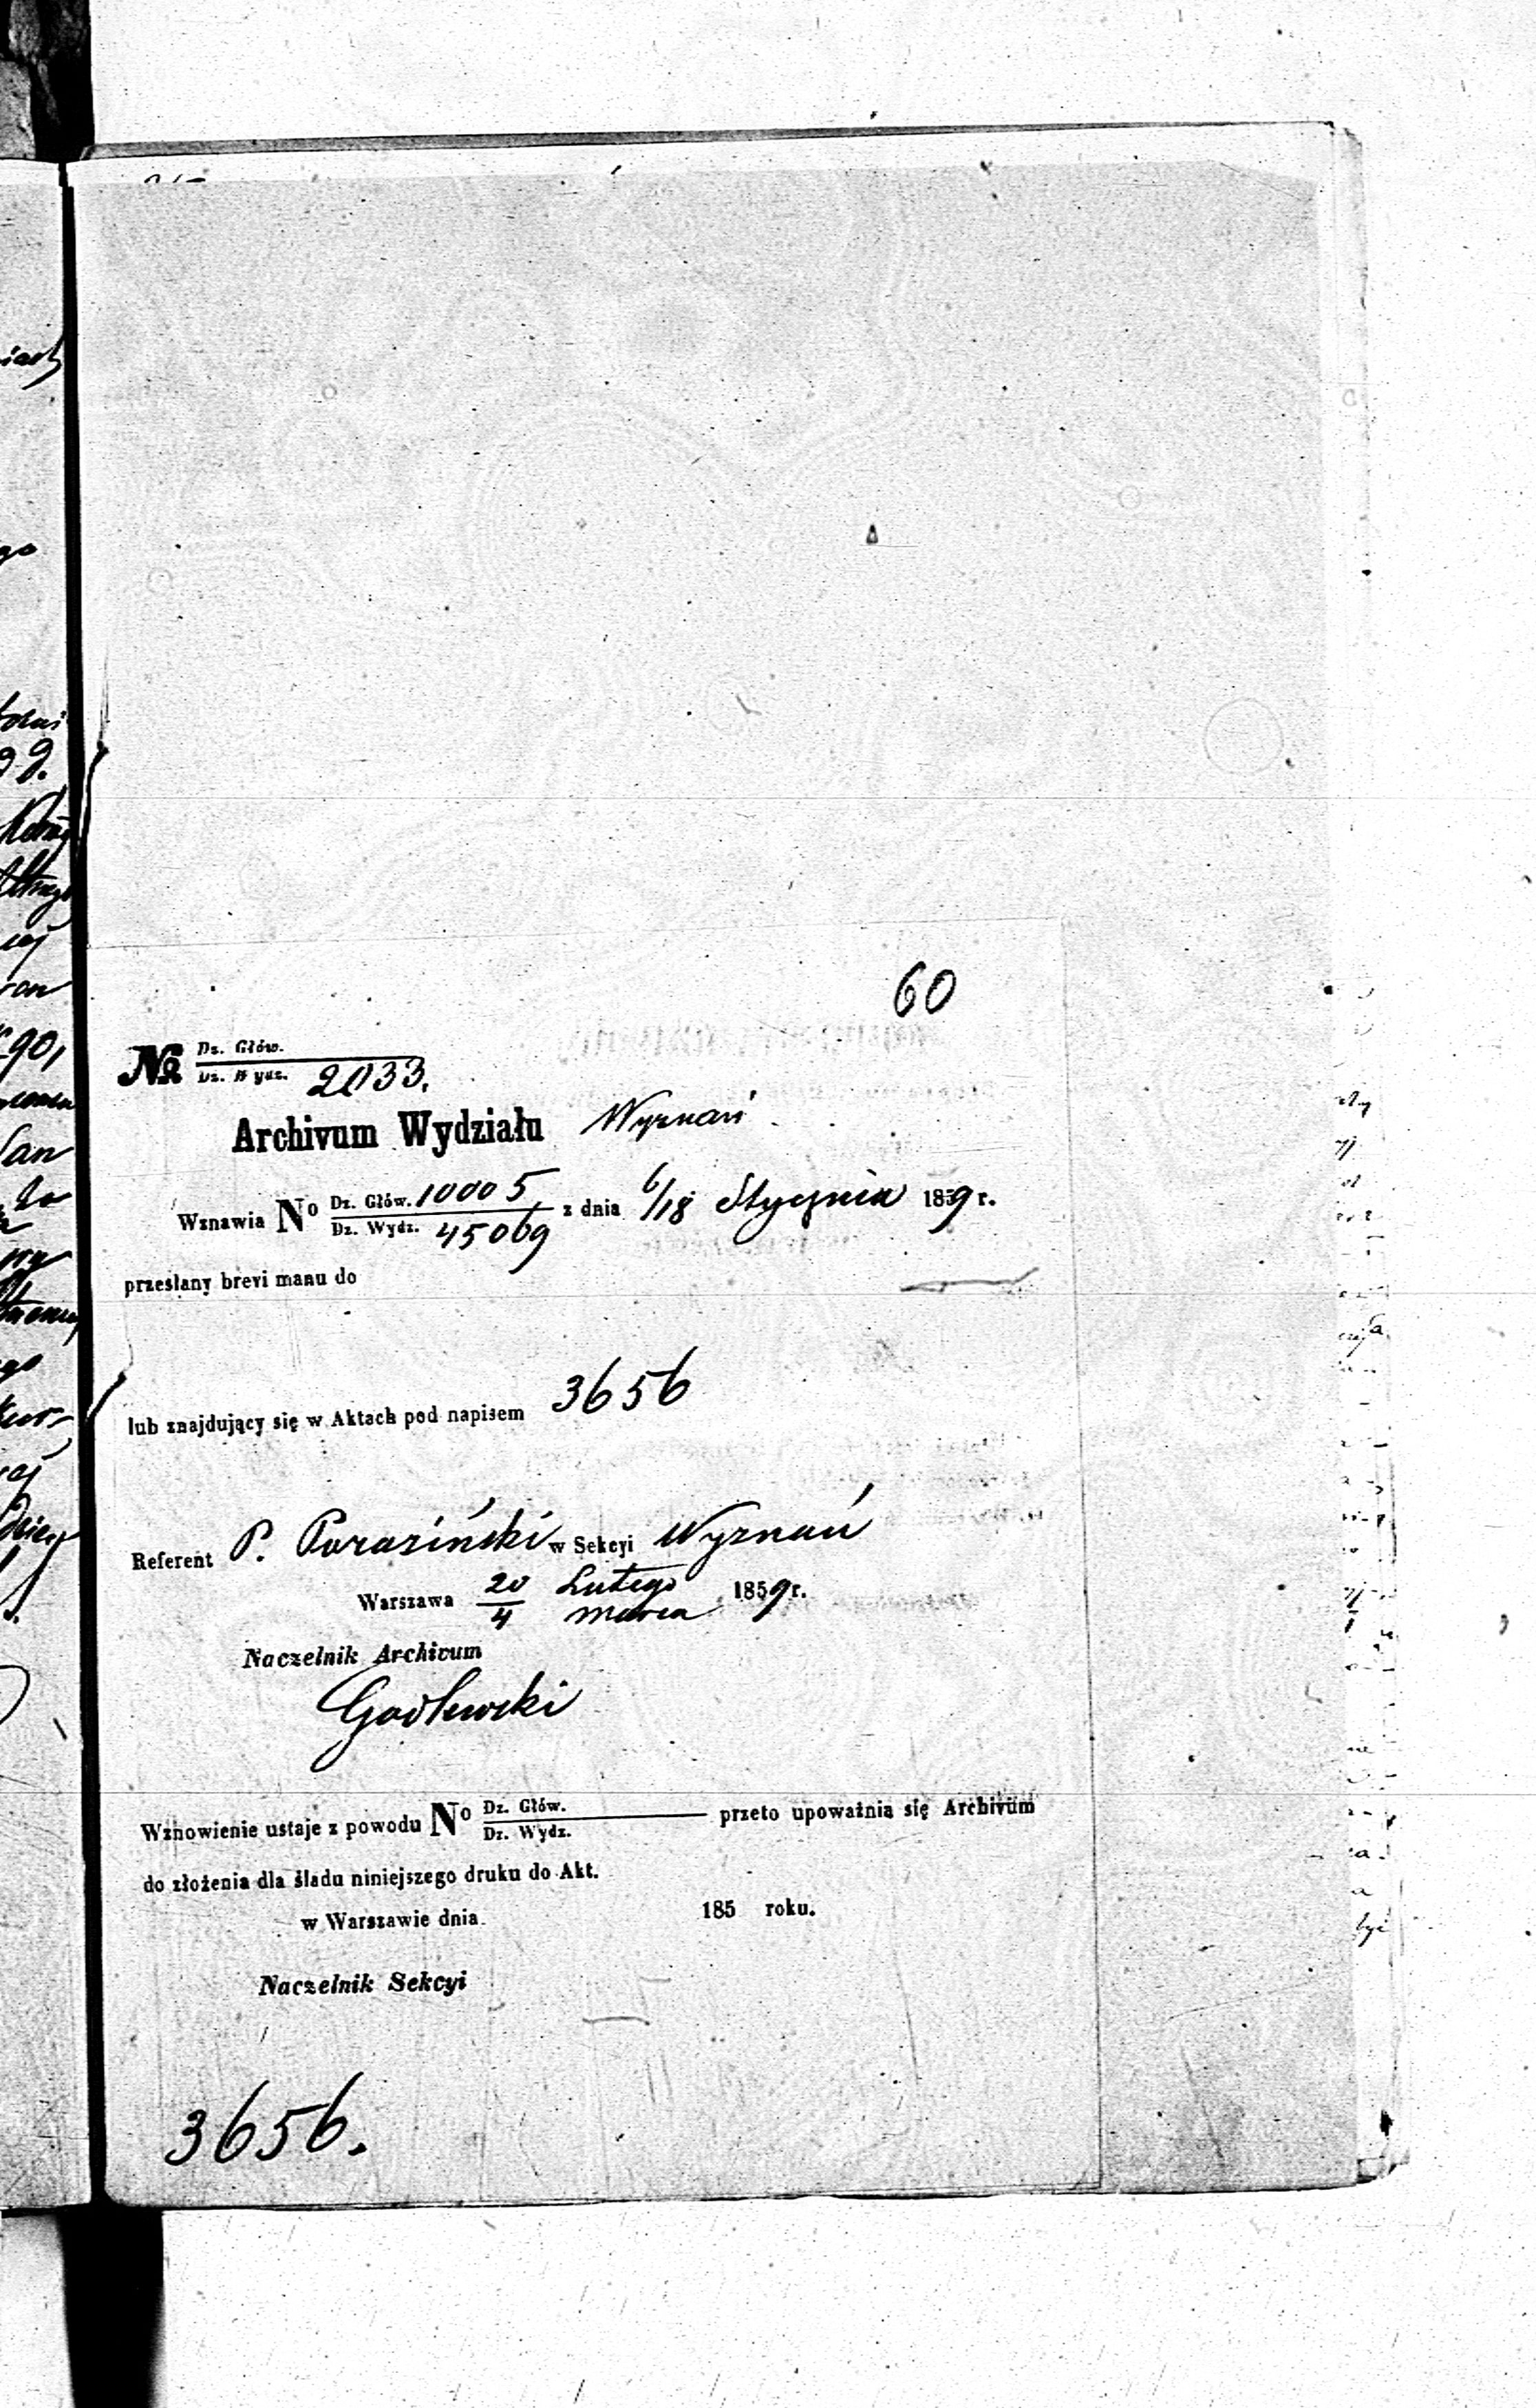 60
№ Dz. Głów.
Dz. Wydz. 2033.
Archivum Wydziału Wyznań
Wznawia No Dz. Głów. 10005 z dnia 6/18 Stycznia 1859 r.
Dz. Wydz. 45069
przesłany brevi manu do
lub znajdujący się w Aktach pod napisem 3656
Referent P. Parasiński w Sekcyi Wyznań
Warszawa 20/4 Lutego/Marca 1859 r.
Naczelnik Archivum
Godlewski
Wznowienie ustaje z powodu No Dz. Głów. przeto upoważnia się Archivum
Dz. Wydz.
do złożenia dla śladu niniejszego druku do Akt.
w Warszawie dnia 185 roku.
Naczelnik Sekcyi
3656.